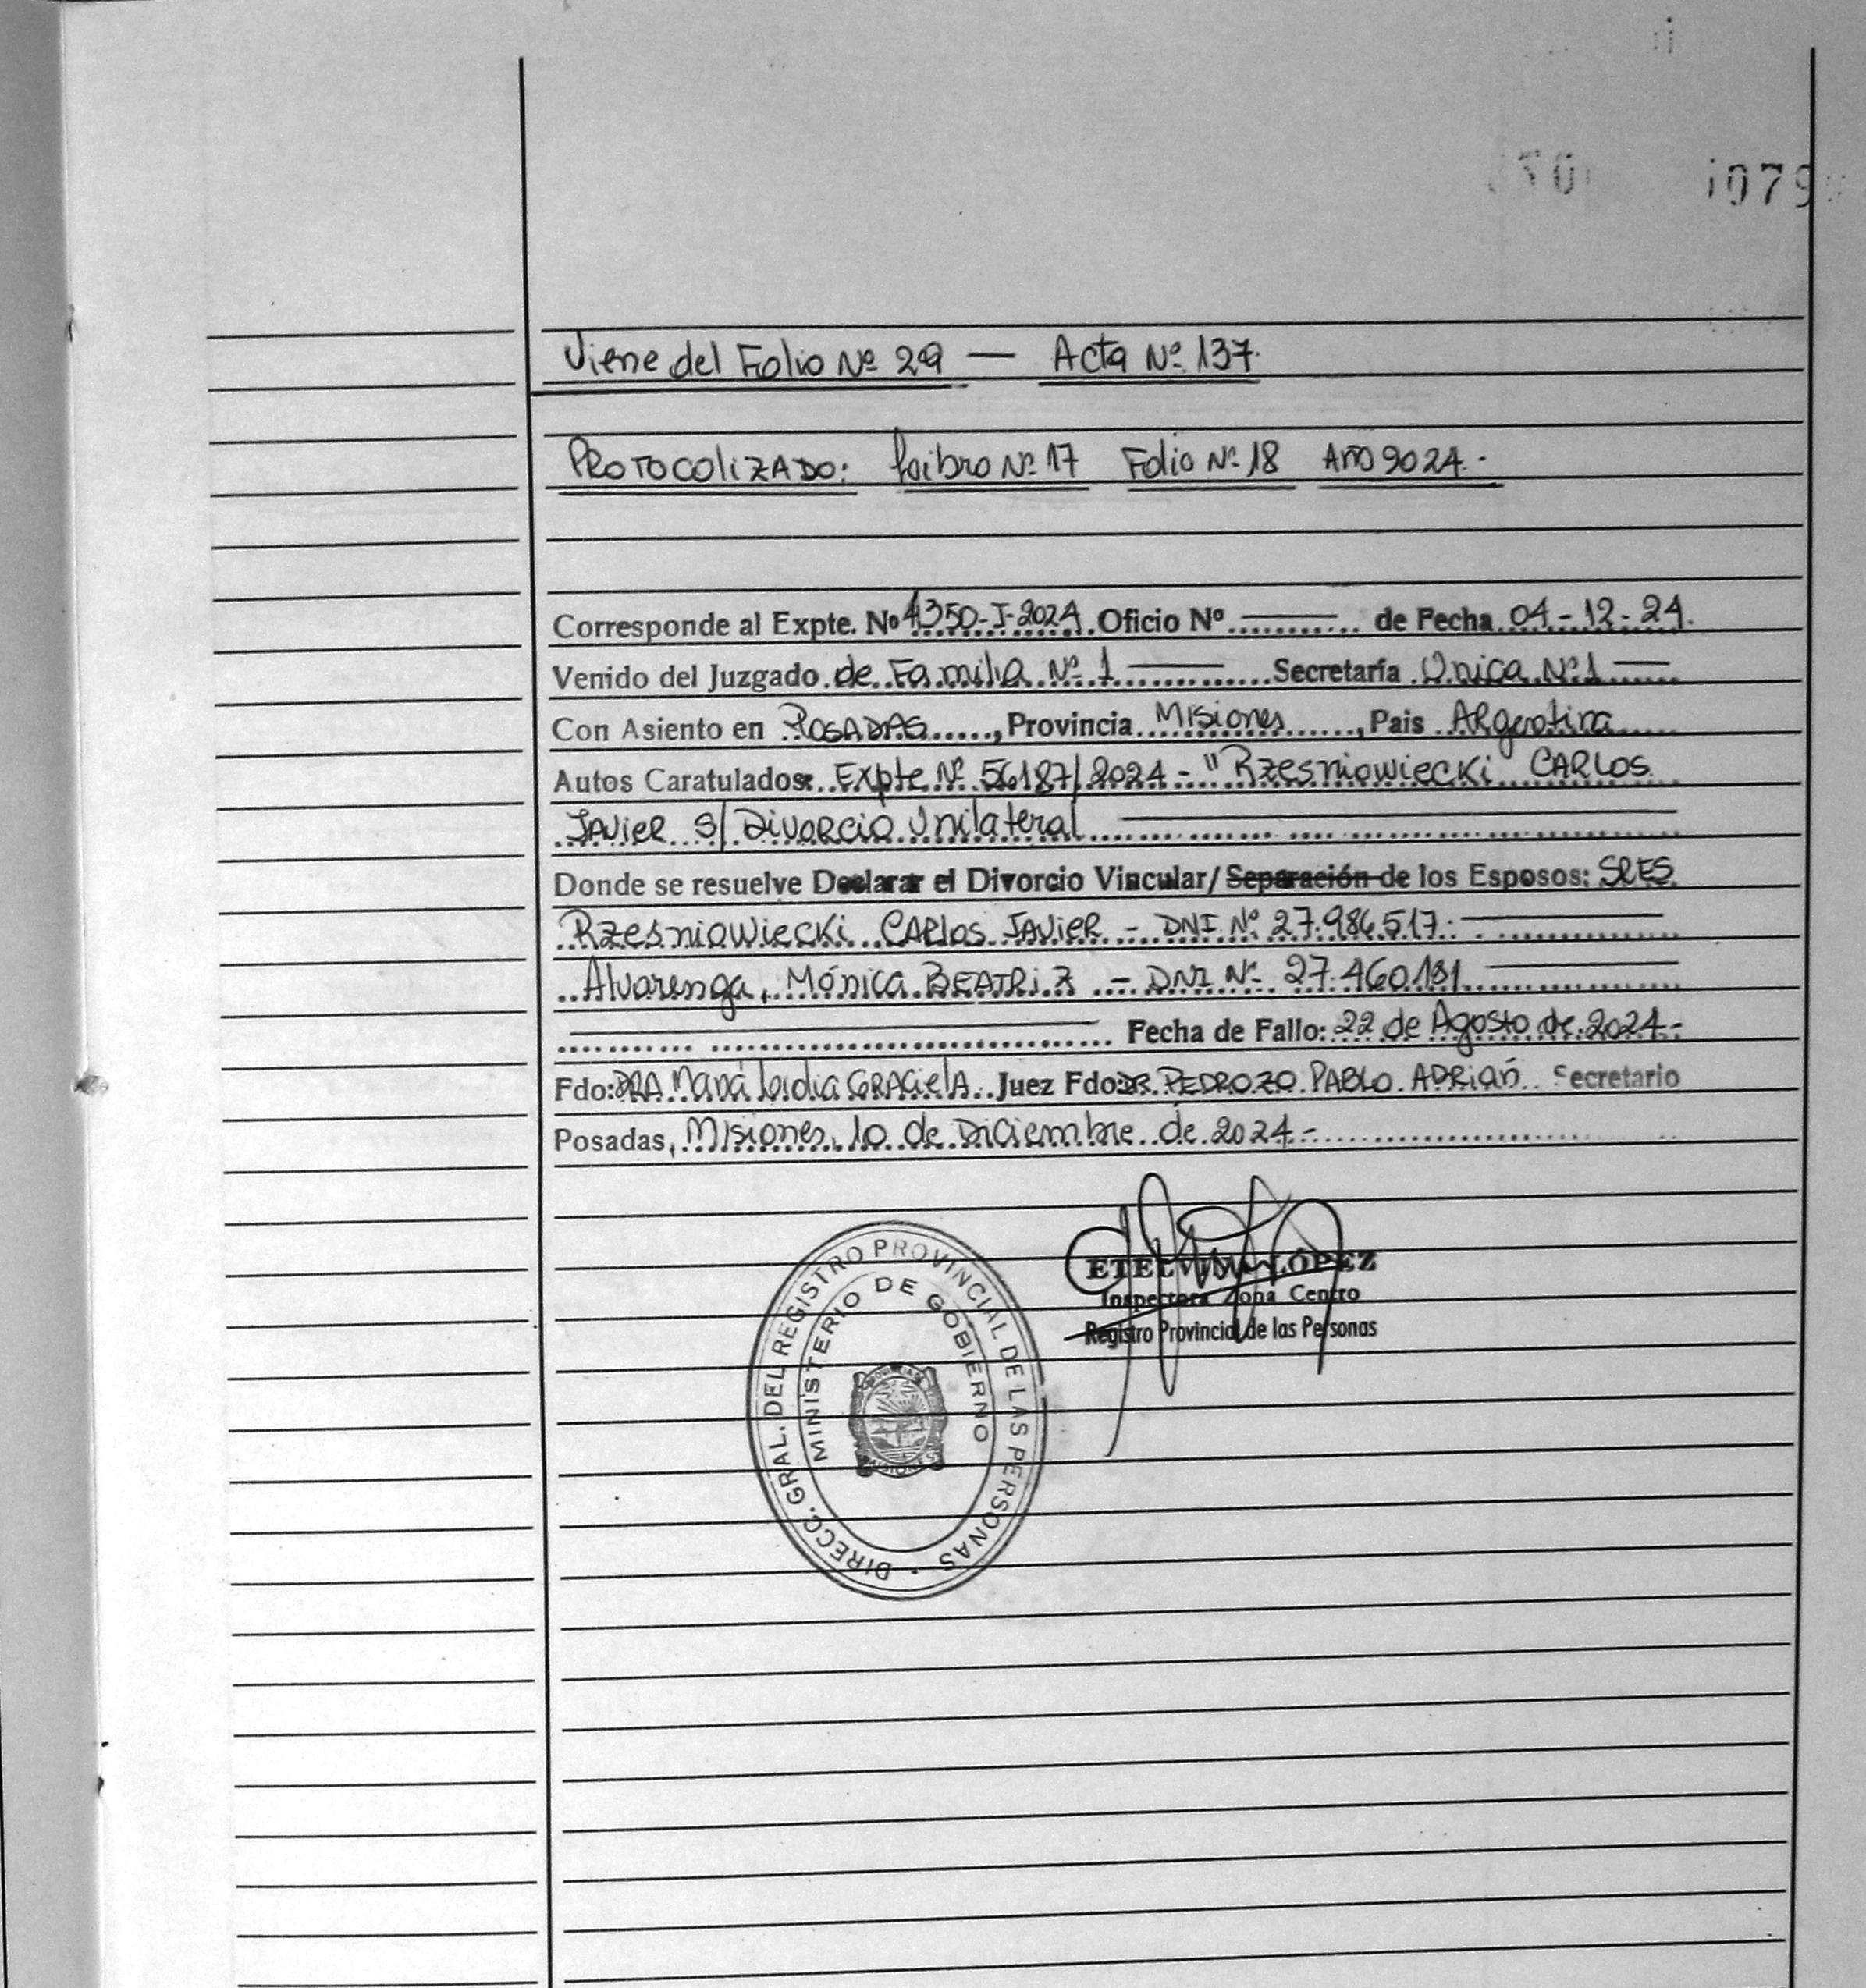 1079
Viene del Folio Nº 29 — Acta Nº 137.
PROTOCOLIZADO: Libro Nº 17 Folio Nº 18 AÑO 2024.-
Corresponde al Expte. Nº 4350-I-2024. Oficio Nº ——— de Fecha 04-12-24.
Venido del Juzgado de Familia Nº 1 ——— Secretaría Única Nº 1 ———
Con Asiento en POSADAS, Provincia Misiones, Pais Argentina
Autos Caratulados: Expte Nº 56187/2024 - "Rzesniowiecki CARLOS
JAVIER S/ Divorcio Unilateral
Donde se resuelve Declarar el Divorcio Vincular/ Separación de los Esposos: SRES.
Rzesniowiecki CARLOS JAVIER - DNI Nº 27.986.517.
Alvarenga, Mónica BEATRIZ - DNI Nº 27.460.191
Fecha de Fallo: 22 de Agosto de 2024.-
Fdo: DRA. Lidia GRACIELA. Juez Fdo: DR. PEDROZO PABLO ADRIÁN Secretario
Posadas, Misiones, 10 de Diciembre de 2024.-
ETELVINA LÓPEZ
Inspectora Zona Centro
Registro Provincial de las Personas
DIRECC. GRAL. DEL REGISTRO PROVINCIAL DE LAS PERSONAS
MINISTERIO DE GOBIERNO